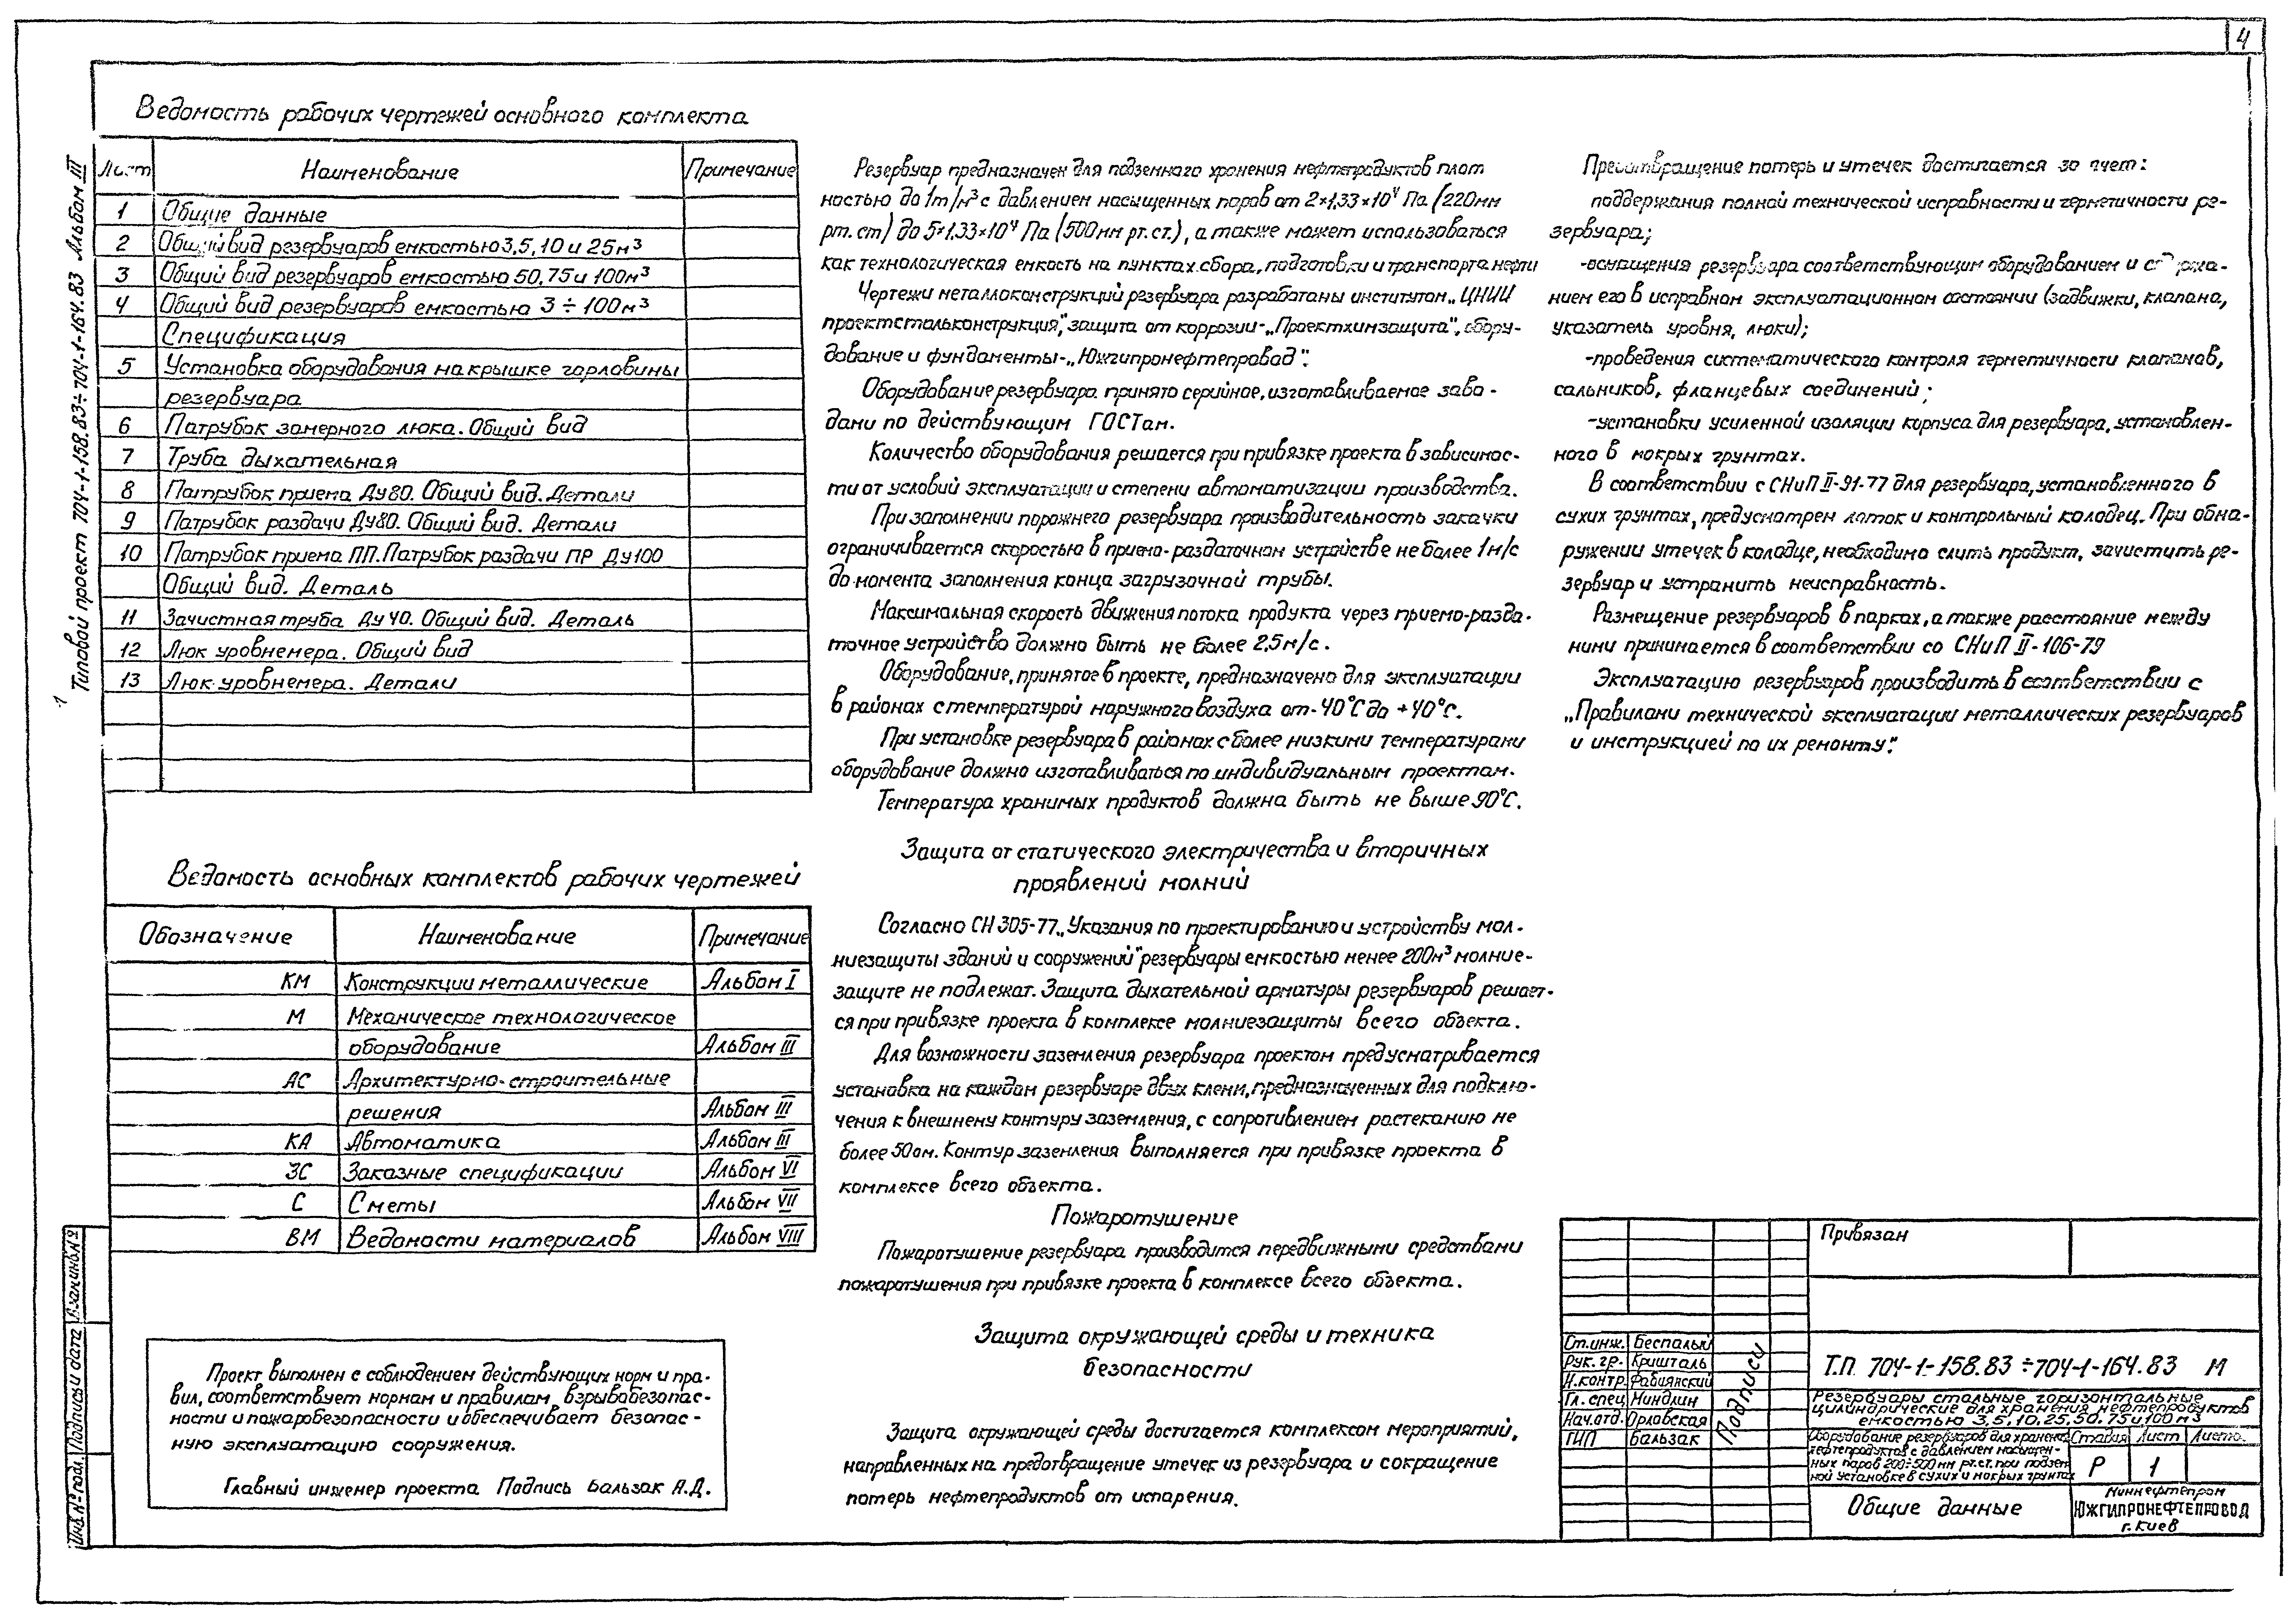 4
Типовой проект 704-1-158.83÷704-1-164.83 Альбом III
Ведомость рабочих чертежей основного комплекта
Лист Наименование Примечание
1 Общие данные
2 Общий вид резервуаров емкостью 3,5,10 и 25м³
3 Общий вид резервуаров емкостью 50,75 и 100м³
4 Общий вид резервуаров емкостью 3÷100м³
Спецификация
5 Установка оборудования на крышке горловины
резервуара
6 Патрубок замерного люка. Общий вид
7 Труба дыхательная
8 Патрубок приема Ду80. Общий вид. Детали
9 Патрубок раздачи Ду80. Общий вид. Детали
10 Патрубок приема ПП. Патрубок раздачи ПР Ду100
Общий вид. Деталь
11 Зачистная труба Ду40. Общий вид. Деталь
12 Люк уровнемера. Общий вид
13 Люк уровнемера. Детали
Ведомость основных комплектов рабочих чертежей
Обозначение Наименование Примечание
КМ Конструкции металлические Альбом I
М Механическое технологическое
оборудование Альбом III
АС Архитектурно-строительные
решения Альбом III
КА Автоматика Альбом III
ЗС Заказные спецификации Альбом VI
С Сметы Альбом VII
ВМ Ведомости материалов Альбом VIII
Проект выполнен с соблюдением действующих норм и пра-
вил, соответствует нормам и правилам взрывобезопас-
ности и пожаробезопасности и обеспечивает безопас-
ную эксплуатацию сооружения.
Главный инженер проекта Подпись Бальзак А.Д.
Резервуар предназначен для подземного хранения нефтепродуктов плот
ностью до 1т/м³ с давлением насыщенных паров от 2×1,33×10⁴ Па (220мм
рт. ст) до 5×1.33×10⁴ Па (500мм рт. ст.), а также может использоваться
как технологическая емкость на пунктах сбора, подготовки и транспорта нефти
Чертежи металлоконструкций резервуара разработаны институтом „ЦНИИ
проектстальконструкция", защита от коррозии-„Проектхимзащита", обору-
дование и фундаменты-„Южгипронефтепровод".
Оборудование резервуара принято серийное, изготавливаемое заво-
дами по действующим ГОСТам.
Количество оборудования решается при привязке проекта в зависимос-
ти от условий эксплуатации и степени автоматизации производства.
При заполнении порожнего резервуара производительность закачки
ограничивается скоростью в приемо-раздаточном устройстве не более 1м/с
до момента заполнения конца загрузочной трубы.
Максимальная скорость движения потока продукта через приемо-разда-
точное устройство должно быть не более 2,5м/с.
Оборудование, принятое в проекте, предназначено для эксплуатации
в районах с температурой наружного воздуха от -40°С до +40°С.
При установке резервуара в районах с более низкими температурами
оборудование должно изготавливаться по индивидуальным проектам.
Температура хранимых продуктов должна быть не выше 90°С.
Защита от статического электричества и вторичных
проявлений молний
Согласно СН 305-77„Указания по проектированию и устройству мол-
ниезащиты зданий и сооружений" резервуары емкостью менее 200м³ молние-
защите не подлежат. Защита дыхательной арматуры резервуаров решает-
ся при привязке проекта в комплексе молниезащиты всего объекта.
Для возможности заземления резервуара проектом предусматривается
установка на каждом резервуаре двух клемм, предназначенных для подклю-
чения к внешнему контуру заземления, с сопротивлением растеканию не
более 50ом. Контур заземления выполняется при привязке проекта в
комплексе всего объекта.
Пожаротушение
Пожаротушение резервуара производится передвижными средствами
пожаротушения при привязке проекта в комплексе всего объекта.
Защита окружающей среды и техника
безопасности
Защита окружающей среды достигается комплексом мероприятий,
направленных на предотвращение утечек из резервуара и сокращение
потерь нефтепродуктов от испарения.
Предотвращение потерь и утечек достигается за счет:
поддержания полной технической исправности и герметичности ре-
зервуара;
-оснащения резервуара соответствующим оборудованием и содержа-
нием его в исправном эксплуатационном состоянии (задвижки, клапана,
указатель уровня, люки);
-проведения систематического контроля герметичности клапанов,
сальников, фланцевых соединений;
-установки усиленной изоляции корпуса для резервуара, установлен-
ного в мокрых грунтах.
В соответствии с СНиП II-91-77 для резервуара, установленного в
сухих грунтах, предусмотрен лоток и контрольный колодец. При обна-
ружении утечек в колодце, необходимо слить продукт, зачистить ре-
зервуар и устранить неисправность.
Размещение резервуаров в парках, а также расстояние между
ними принимается в соответствии со СНиП II-106-79
Эксплуатацию резервуаров производить в соответствии с
„Правилами технической эксплуатации металлических резервуаров
и инструкцией по их ремонту".
Привязан
Ст.инж. Беспалый
Рук. гр. Кришталь
Н.контр. Фабиянский
Гл. спец Миндлин
Нач.отд. Орловская
ГИП Бальзак
Подписи
Т.П. 704-1-158.83÷704-1-164.83 М
Резервуары стальные горизонтальные
цилиндрические для хранения нефтепродуктов
емкостью 3,5,10,25,50,75 и 100 м³
Оборудование резервуаров для хранения
нефтепродуктов с давлением насыщен-
ных паров 200÷500мм рт.ст. при подзем
ной установке в сухих и мокрых грунтах
Стадия Лист Листов
Р 1
Общие данные
Миннефтепром
ЮЖГИПРОНЕФТЕПРОВОД
г. Киев
Инв.№ подл. Подпись и дата Взам.инв.№